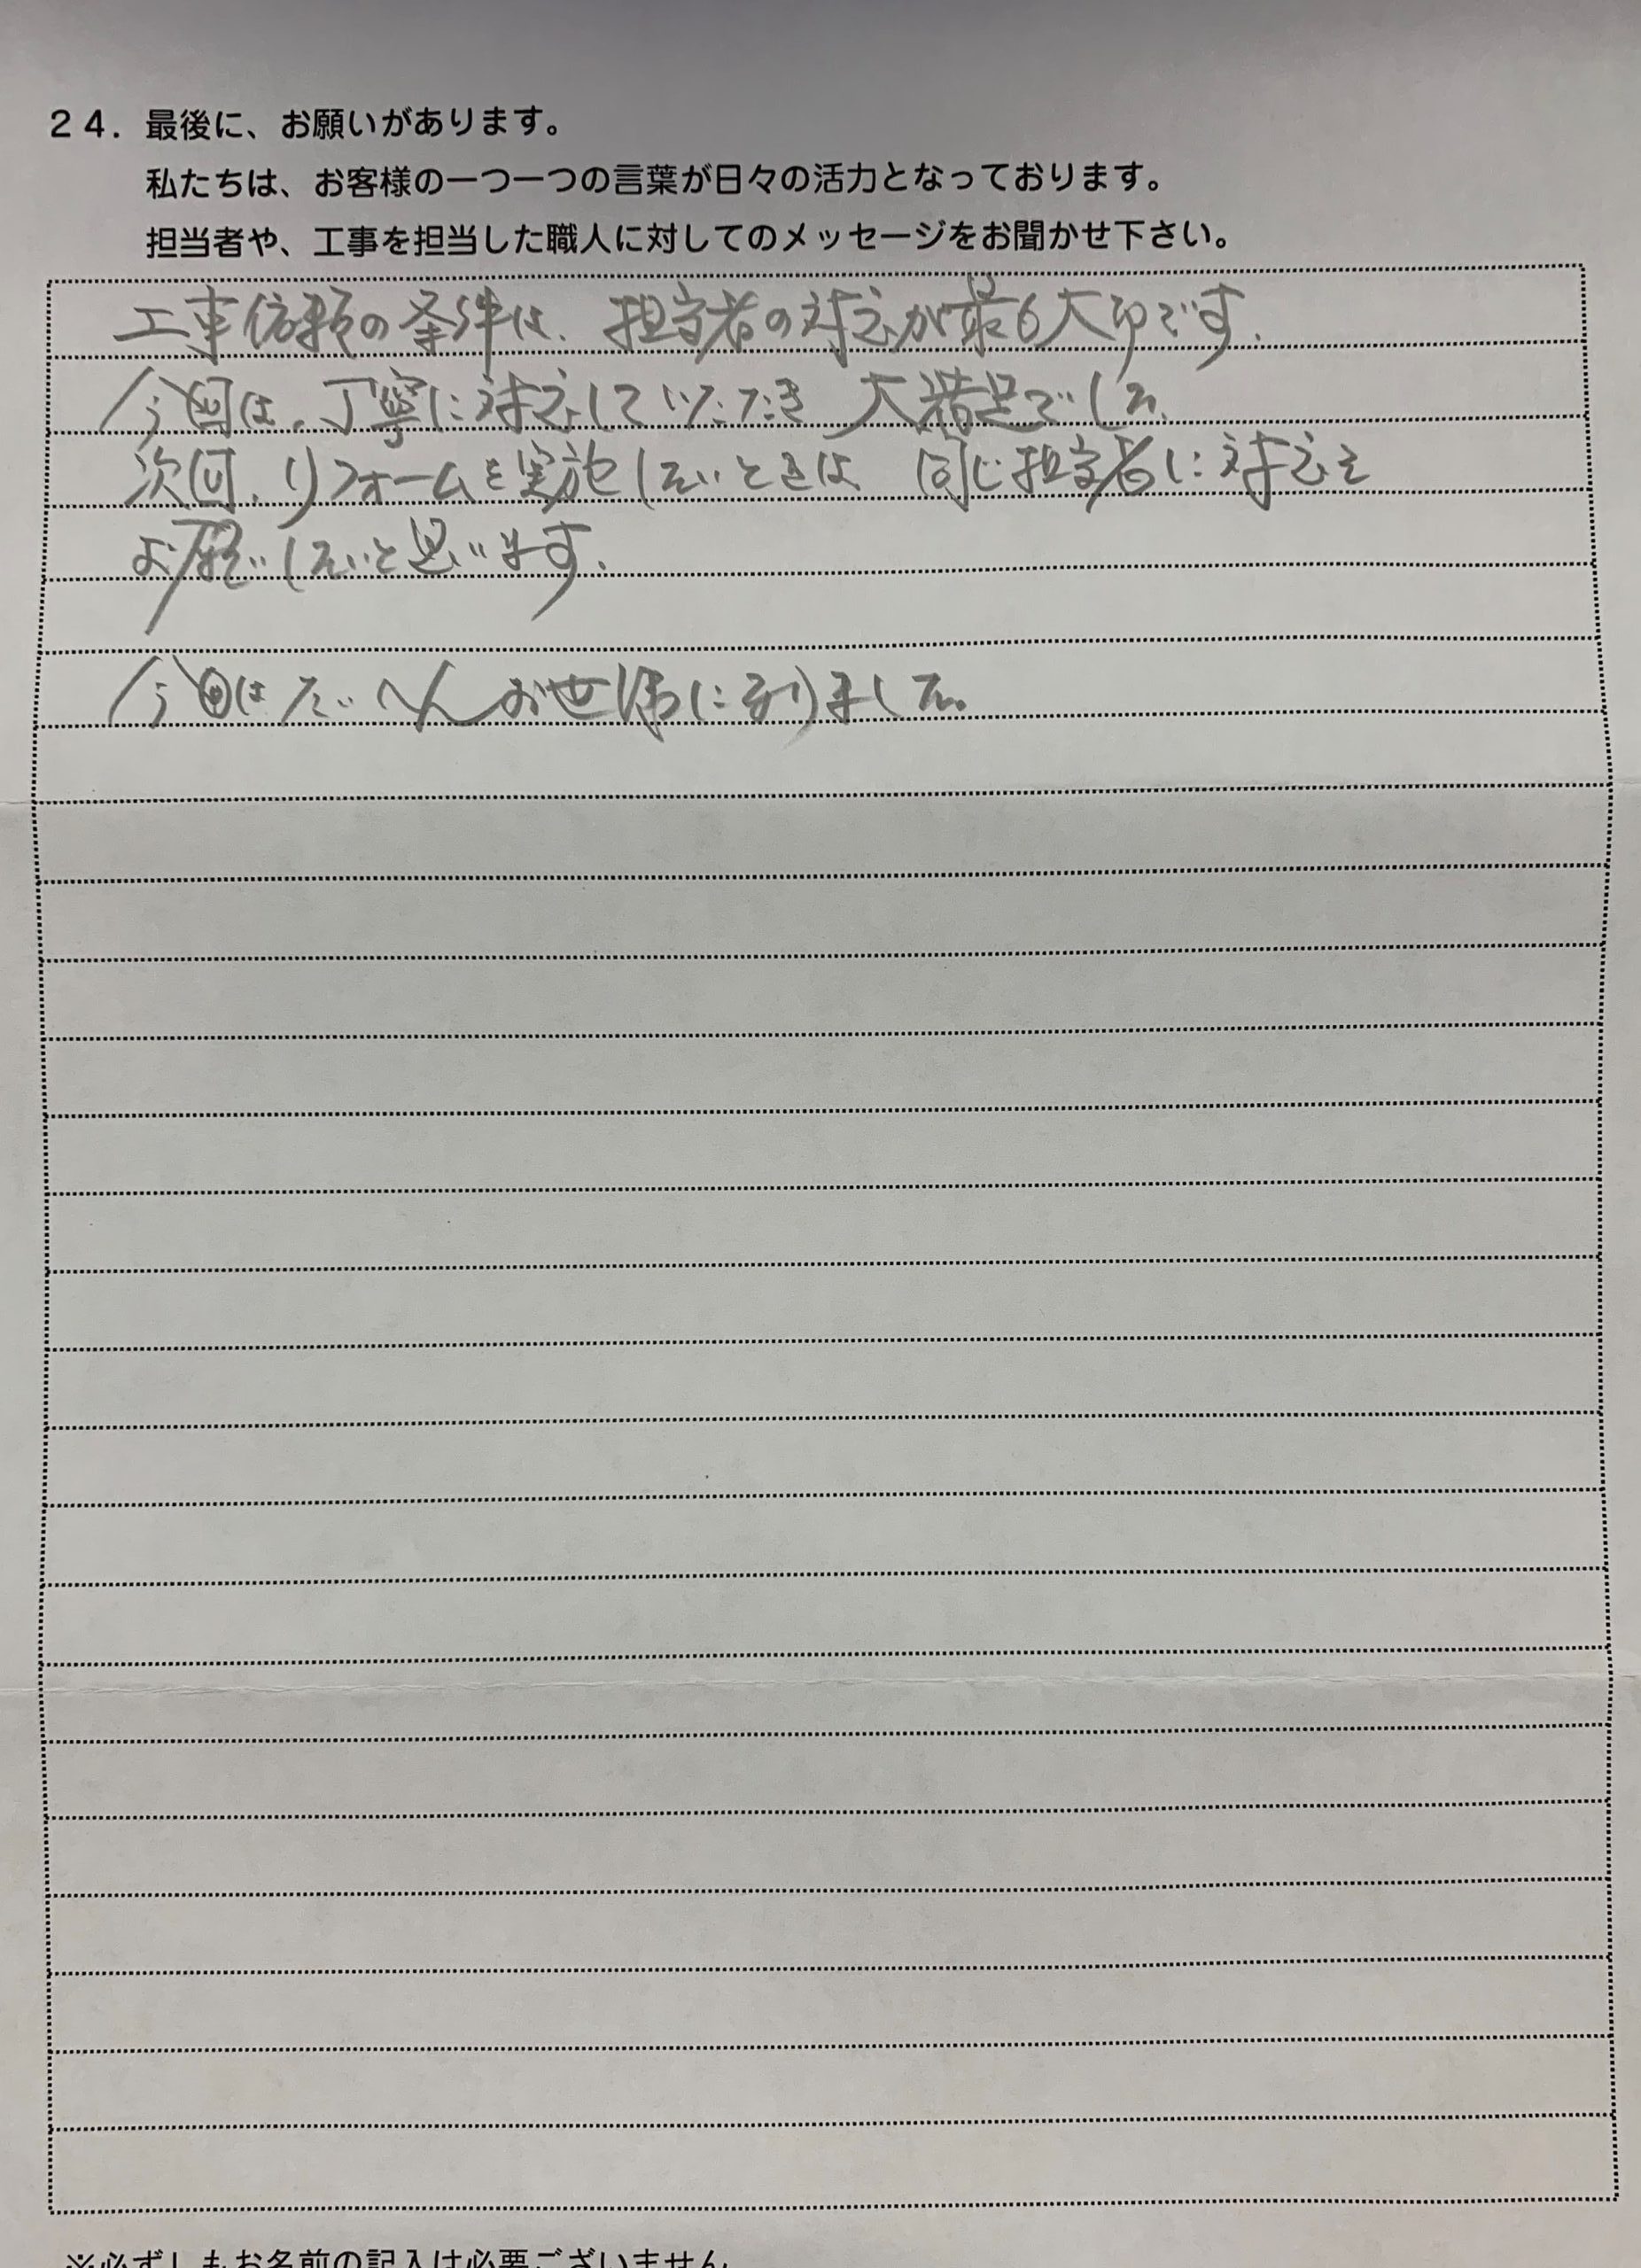 24. 最後に、お願いがあります。
私たちは、お客様の一つ一つの言葉が日々の活力となっております。
担当者や、工事を担当した職人に対してのメッセージをお聞かせ下さい。
工事依頼の条件は、担当者の対応が最も大切です。
今回は、丁寧に対応していただき大満足でした。
次回、リフォームを実施したいときは同じ担当者に対応を
お願いしたいと思います。
今回はたいへんお世話になりました。
※必ずしもお名前の記入は必要ございません